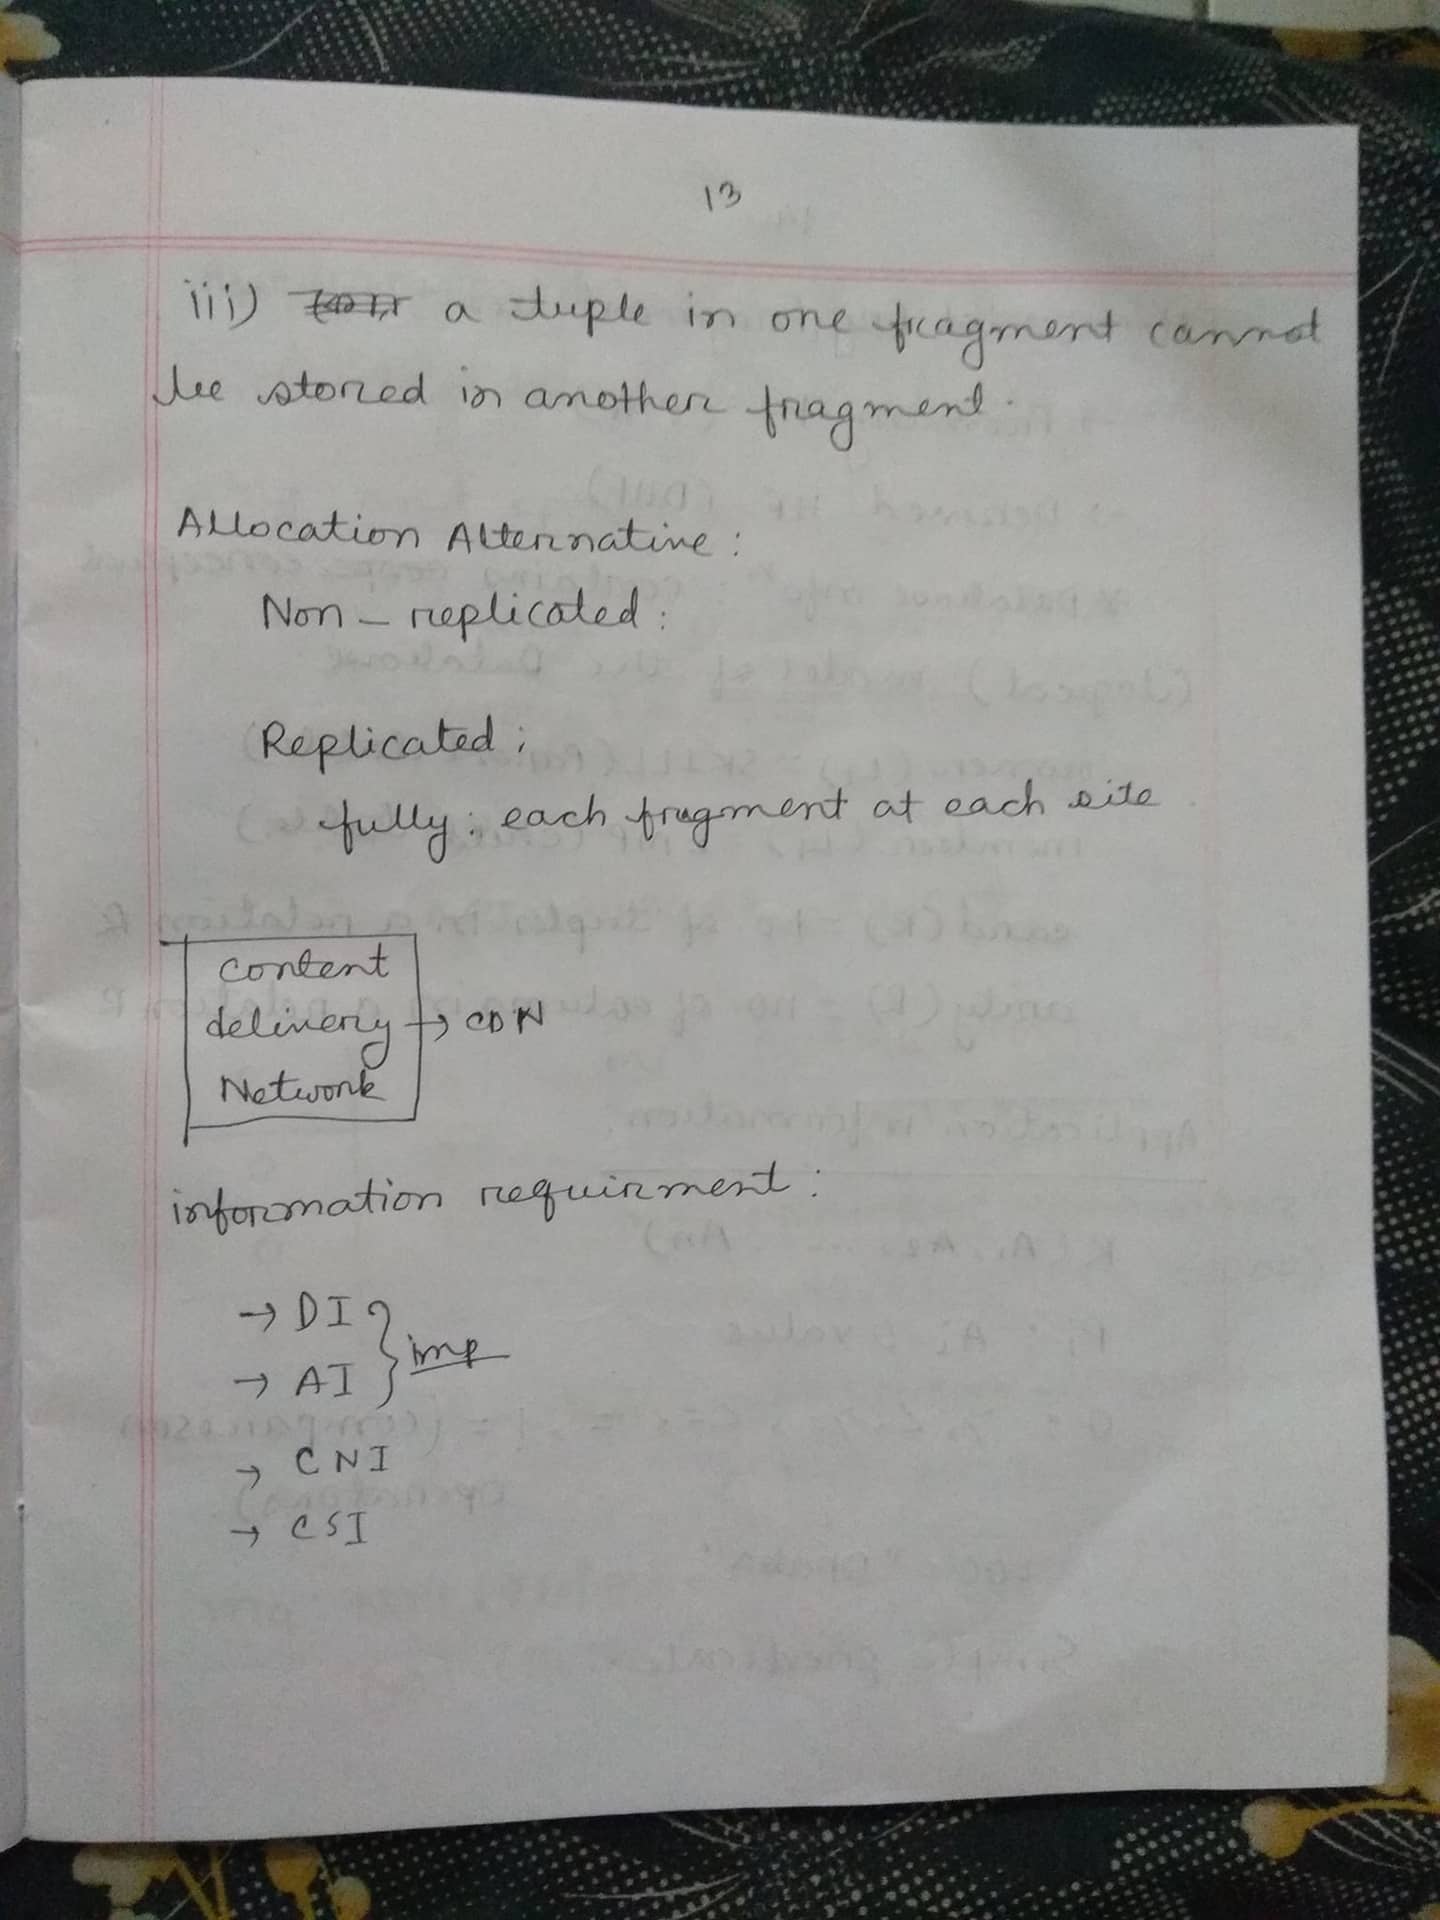 13
iii) a tuple in one fragment cannot
be stored in another fragment.
Allocation Alternative :
Non - replicated :
Replicated ;
fully : each fragment at each site
content
delivery → CDN
Network
information requirment :
→ DI
→ AI } imp
→ CNI
→ CSI